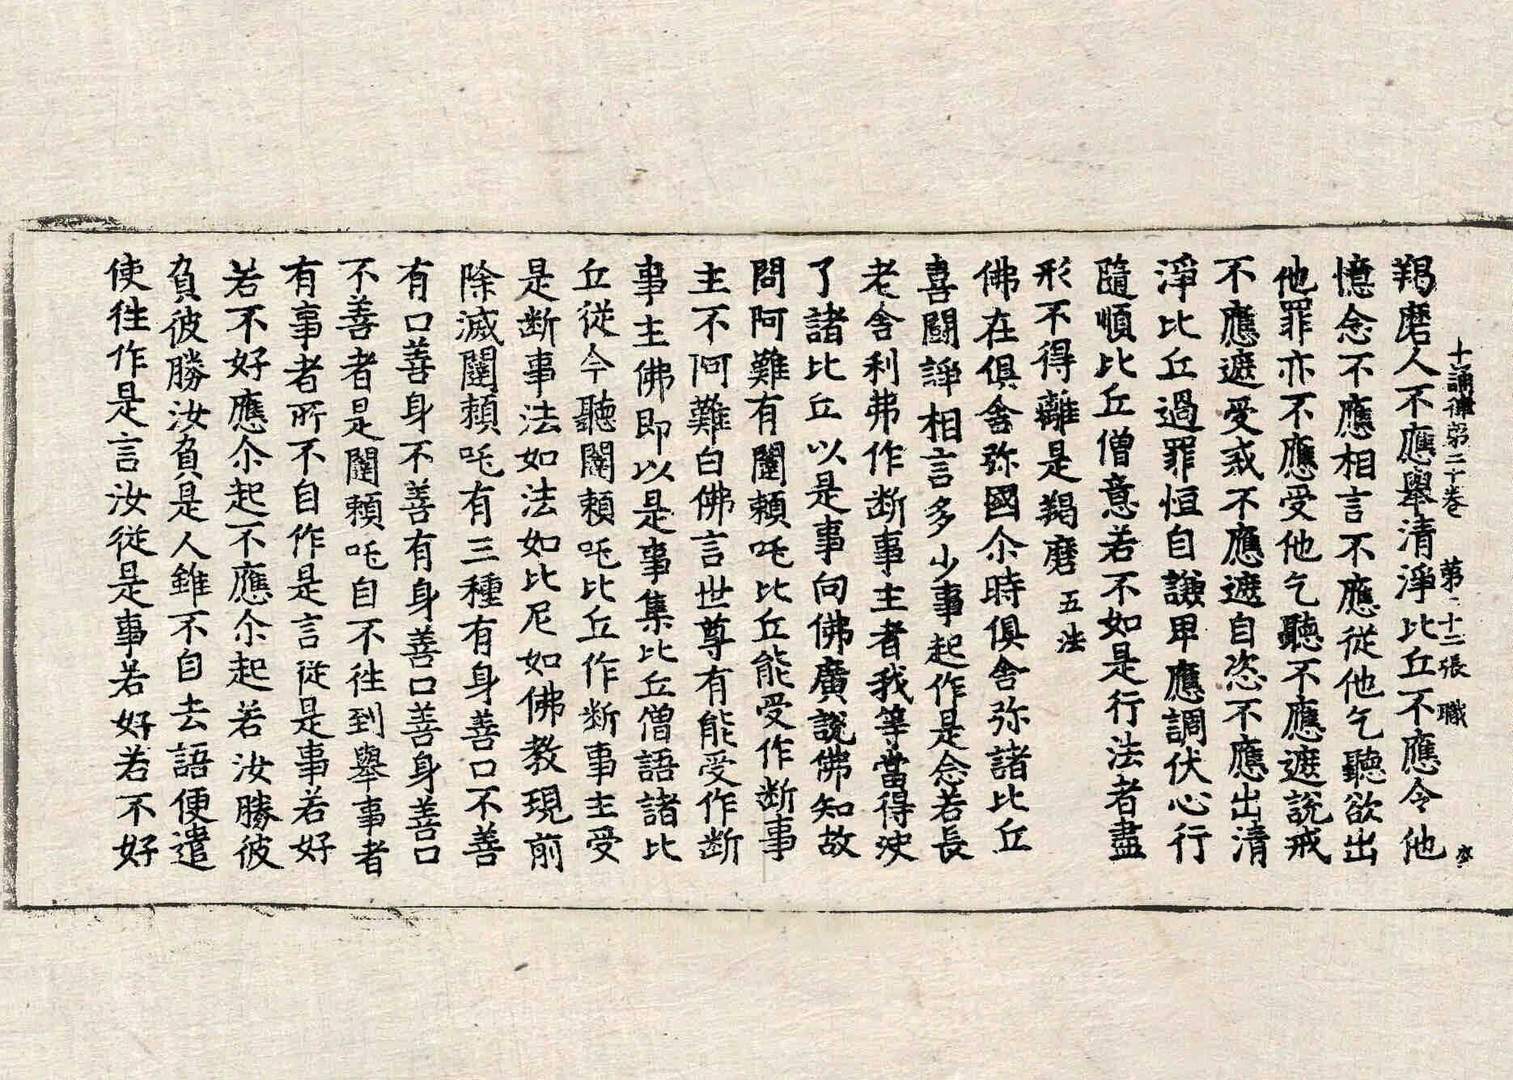 十誦律第二十卷 第二十二張 職
羯磨人不應舉清淨比丘不應令他
憶念不應相言不應從他乞聽欲出
他罪亦不應受他乞聽不應遮說戒
不應遮受戒不應遮自恣不應出清
淨比丘過罪恒自謙卑應調伏心行
隨順比丘僧意若不如是行法者盡
形不得離是羯磨 五法
佛在俱舍弥國尒時俱舍弥諸比丘
喜鬪諍相言多少事起作是念若長
老舍利弗作斷事主者我等當得決
了諸比丘以是事向佛廣說佛知故
問阿難有闥賴吒比丘能受作斷事
主不阿難白佛言世尊有能受作斷
事主佛即以是事集比丘僧語諸比
丘從今聽闥賴吒比丘作斷事主受
是斷事法如法如比尼如佛教現前
除滅闥賴吒有三種有身善口不善
有口善身不善有身善口善身善口
不善者是闥賴吒自不往到舉事者
有事者所不自作是言從是事若好
若不好應尒起不應尒起若汝勝彼
負彼勝汝負是人雖不自去語便遣
使往作是言汝從是事若好若不好